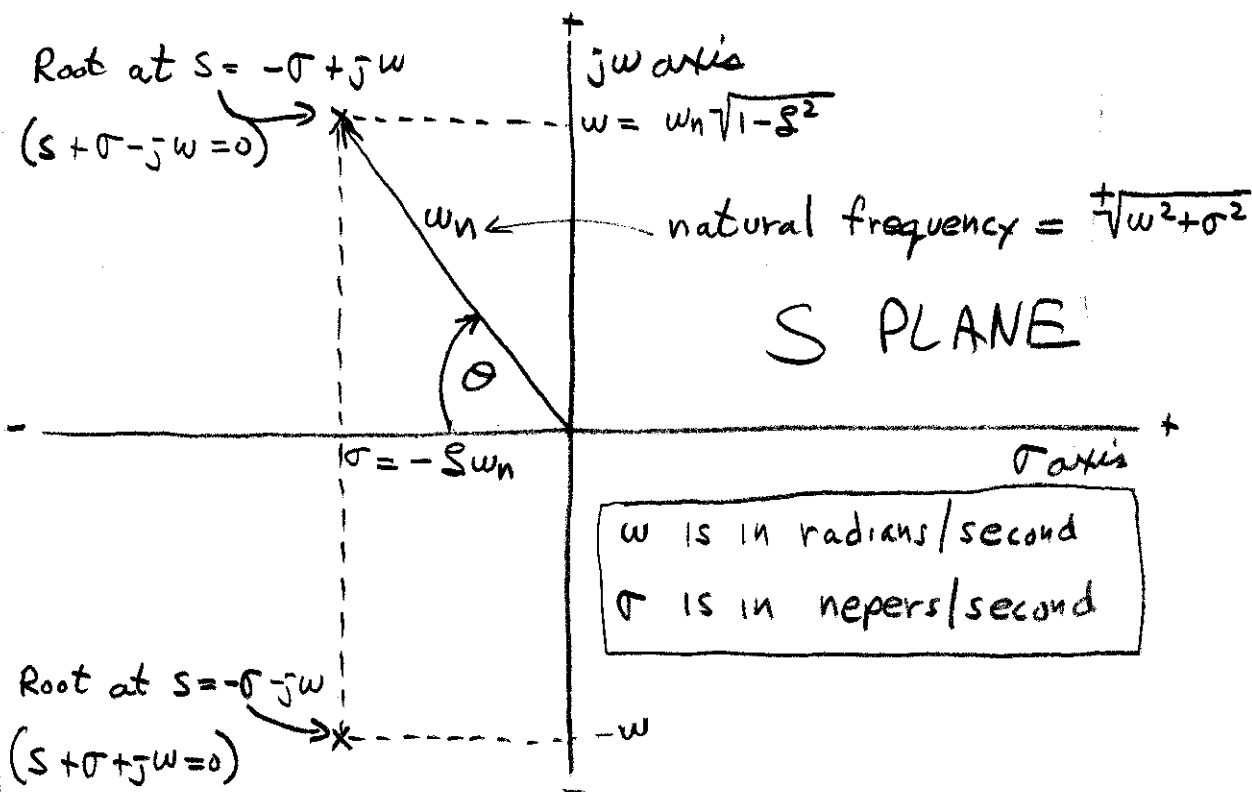 +
jω axis
Root at S = -σ + jω
(S + σ - jω = 0)
ω = ωn√(1-ζ²)
ωn
natural frequency = +√(ω²+σ²)
S PLANE
θ
-
+
σ = -ζωn
σ axis
ω is in radians/second
σ is in nepers/second
Root at S = -σ - jω
(S + σ + jω = 0)
-ω
-